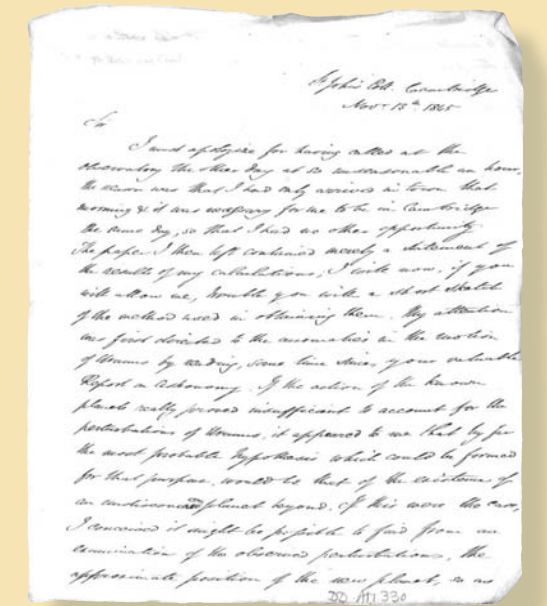 St John's Coll. Cambridge
Nov. 13th 1845
Sir
I must apologize for having called at the
observatory the other day at so unseasonable an hour,
the reason was that I had only arrived in town that
morning & it was necessary for me to be in Cambridge
the same day, so that I had no other opportunity.
The paper I then left contained merely a statement of
the results of my calculations; I will now, if you
will allow me, trouble you with a short sketch
of the method used in obtaining them. My attention
was first directed to the anomalies in the motion
of Uranus by reading, some time since, your valuable
Report on Astronomy. If the action of the known
planets really proved insufficient to account for the
perturbations of Uranus, it appeared to me that by far
the most probable hypothesis which could be formed
for that purpose, would be that of the existence of
an undiscovered planet beyond. If this were the case,
I conceived it might be possible to find from an
examination of the observed perturbations, the
approximate position of the new planet, so as
DD AM 330